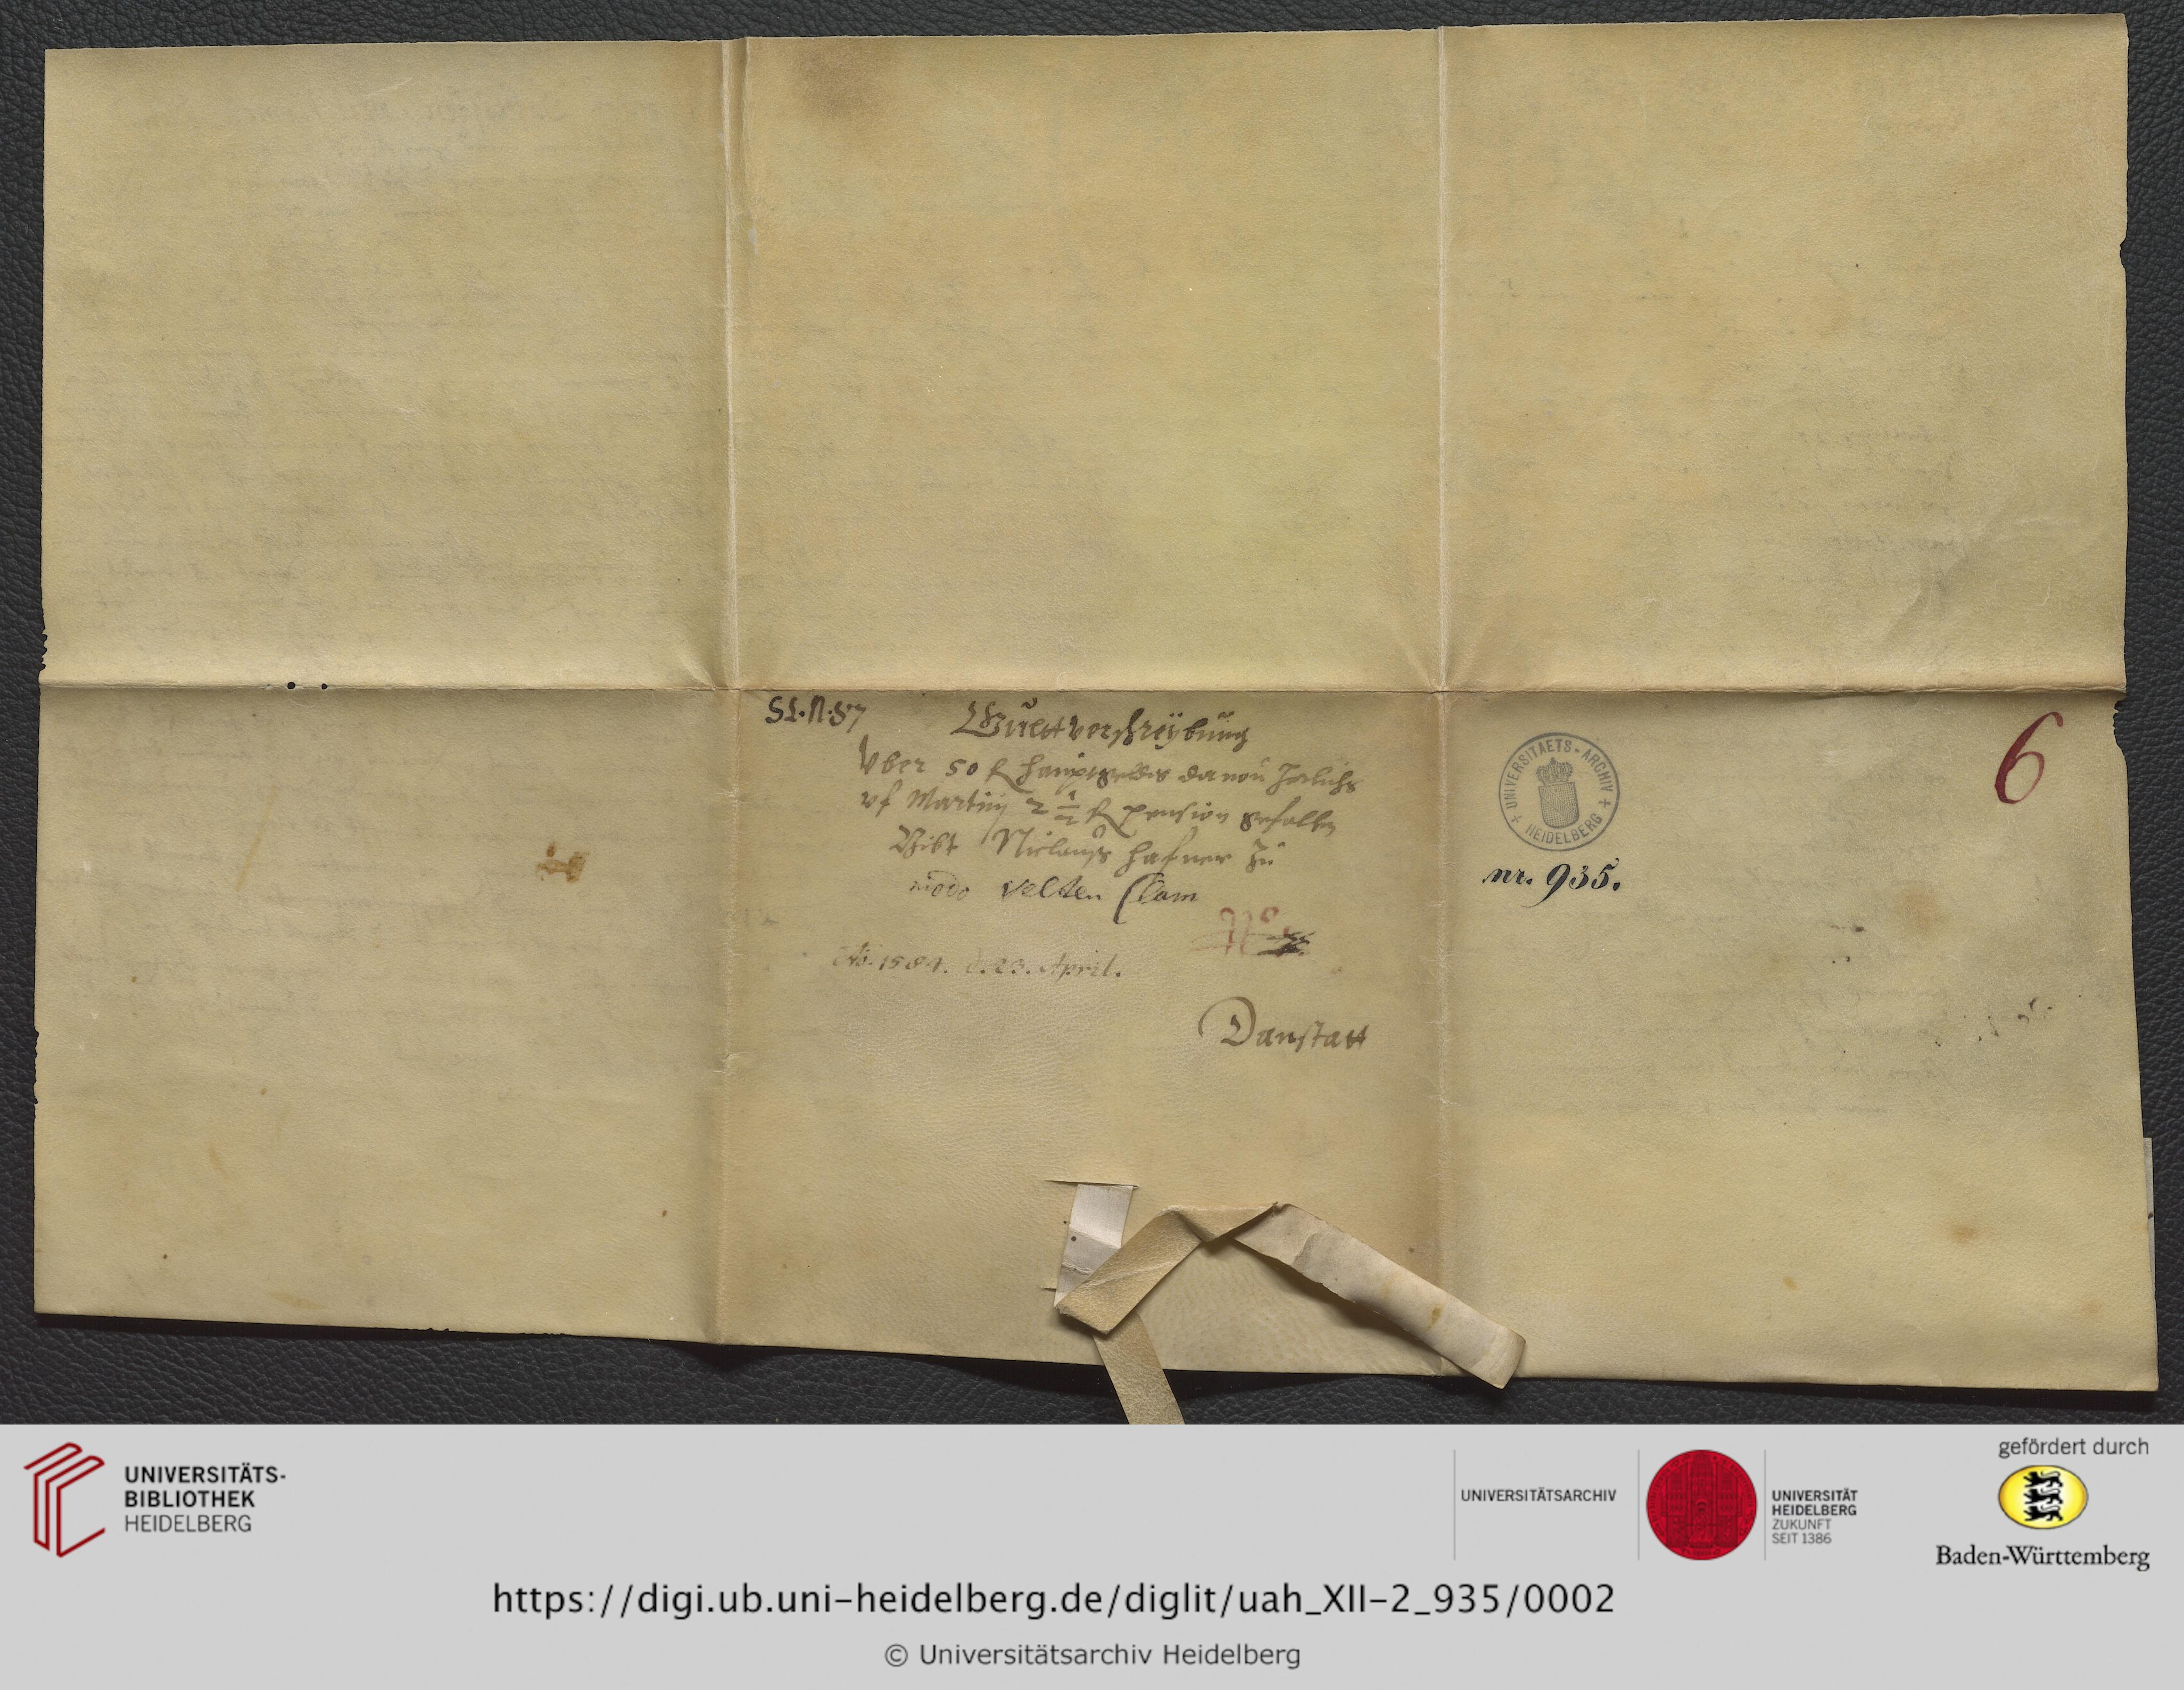 St. N. 57
Gultverschreÿbung
Vber 50 fl haubtgeldes dauon Jerlichs
vf Martinj 2 1/2 fl pension gefallen
Gibt Niclauss Hafner zu
modo Velten Clam
No
Ao. 1584. d. 23. April.
Danstatt
+ UNIVERSITAETS-ARCHIV + HEIDELBERG
nr. 935.
6
UNIVERSITÄTS-
BIBLIOTHEK
HEIDELBERG
UNIVERSITÄTSARCHIV
UNIVERSITÄT
HEIDELBERG
ZUKUNFT
SEIT 1386
gefördert durch
Baden-Württemberg
https://digi.ub.uni-heidelberg.de/diglit/uah_XII-2_935/0002
© Universitätsarchiv Heidelberg